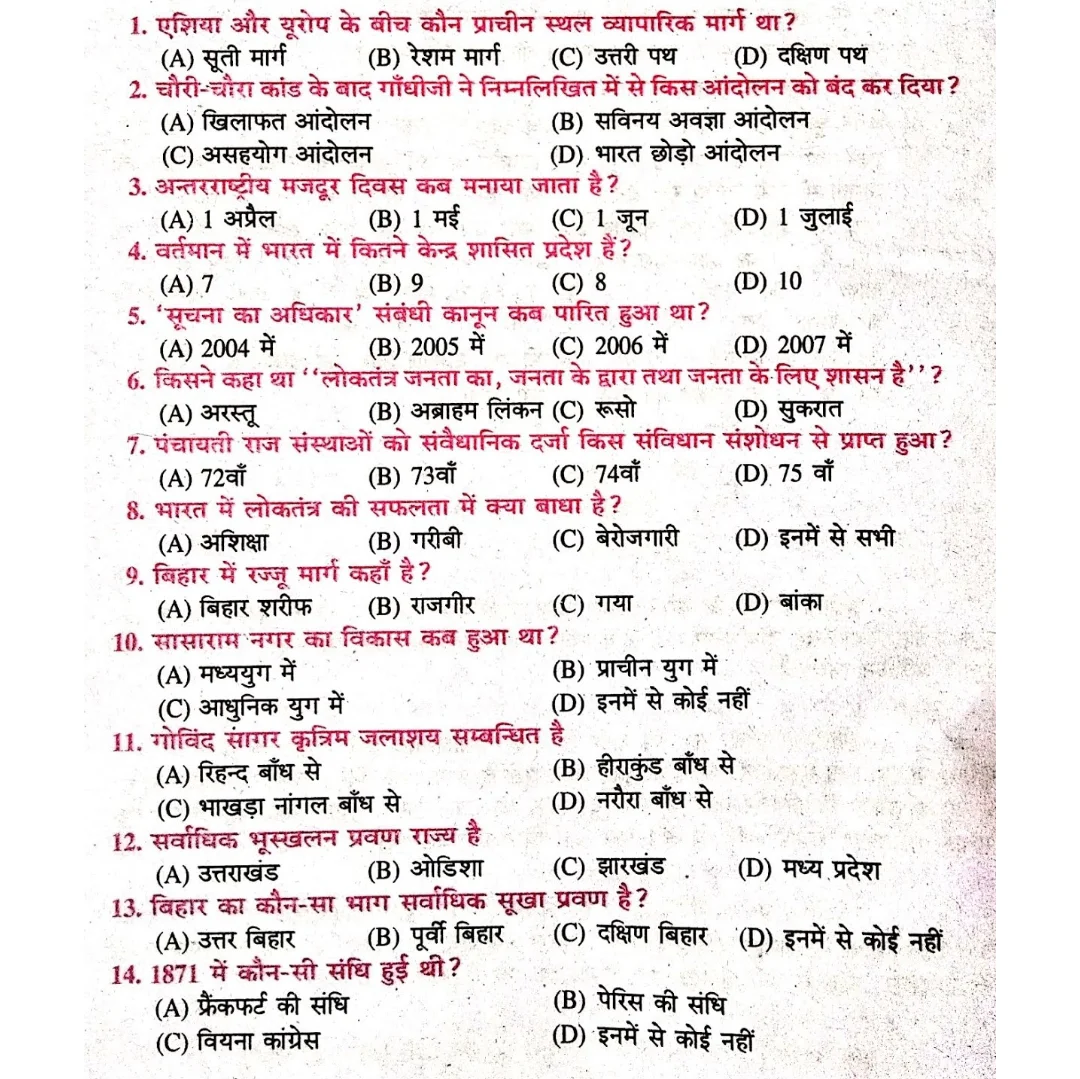 1. एशिया और यूरोप के बीच कौन प्राचीन स्थल व्यापारिक मार्ग था?
(A) सूती मार्ग (B) रेशम मार्ग (C) उत्तरी पथ (D) दक्षिण पथ
2. चौरी-चौरा कांड के बाद गाँधीजी ने निम्नलिखित में से किस आंदोलन को बंद कर दिया?
(A) खिलाफत आंदोलन (B) सविनय अवज्ञा आंदोलन
(C) असहयोग आंदोलन (D) भारत छोड़ो आंदोलन
3. अन्तरराष्ट्रीय मजदूर दिवस कब मनाया जाता है?
(A) 1 अप्रैल (B) 1 मई (C) 1 जून (D) 1 जुलाई
4. वर्तमान में भारत में कितने केन्द्र शासित प्रदेश हैं?
(A) 7 (B) 9 (C) 8 (D) 10
5. ‘सूचना का अधिकार’ संबंधी कानून कब पारित हुआ था?
(A) 2004 में (B) 2005 में (C) 2006 में (D) 2007 में
6. किसने कहा था ‘‘लोकतंत्र जनता का, जनता के द्वारा तथा जनता के लिए शासन है’’?
(A) अरस्तू (B) अब्राहम लिंकन (C) रूसो (D) सुकरात
7. पंचायती राज संस्थाओं को संवैधानिक दर्जा किस संविधान संशोधन से प्राप्त हुआ?
(A) 72वाँ (B) 73वाँ (C) 74वाँ (D) 75 वाँ
8. भारत में लोकतंत्र की सफलता में क्या बाधा है?
(A) अशिक्षा (B) गरीबी (C) बेरोजगारी (D) इनमें से सभी
9. बिहार में रज्जू मार्ग कहाँ है?
(A) बिहार शरीफ (B) राजगीर (C) गया (D) बांका
10. सासाराम नगर का विकास कब हुआ था?
(A) मध्ययुग में (B) प्राचीन युग में
(C) आधुनिक युग में (D) इनमें से कोई नहीं
11. गोविंद सागर कृत्रिम जलाशय सम्बन्धित है
(A) रिहन्द बाँध से (B) हीराकुंड बाँध से
(C) भाखड़ा नांगल बाँध से (D) नरौरा बाँध से
12. सर्वाधिक भूस्खलन प्रवण राज्य है
(A) उत्तराखंड (B) ओडिशा (C) झारखंड (D) मध्य प्रदेश
13. बिहार का कौन-सा भाग सर्वाधिक सूखा प्रवण है?
(A) उत्तर बिहार (B) पूर्वी बिहार (C) दक्षिण बिहार (D) इनमें से कोई नहीं
14. 1871 में कौन-सी संधि हुई थी?
(A) फ्रैंकफर्ट की संधि (B) पेरिस की संधि
(C) वियना कांग्रेस (D) इनमें से कोई नहीं